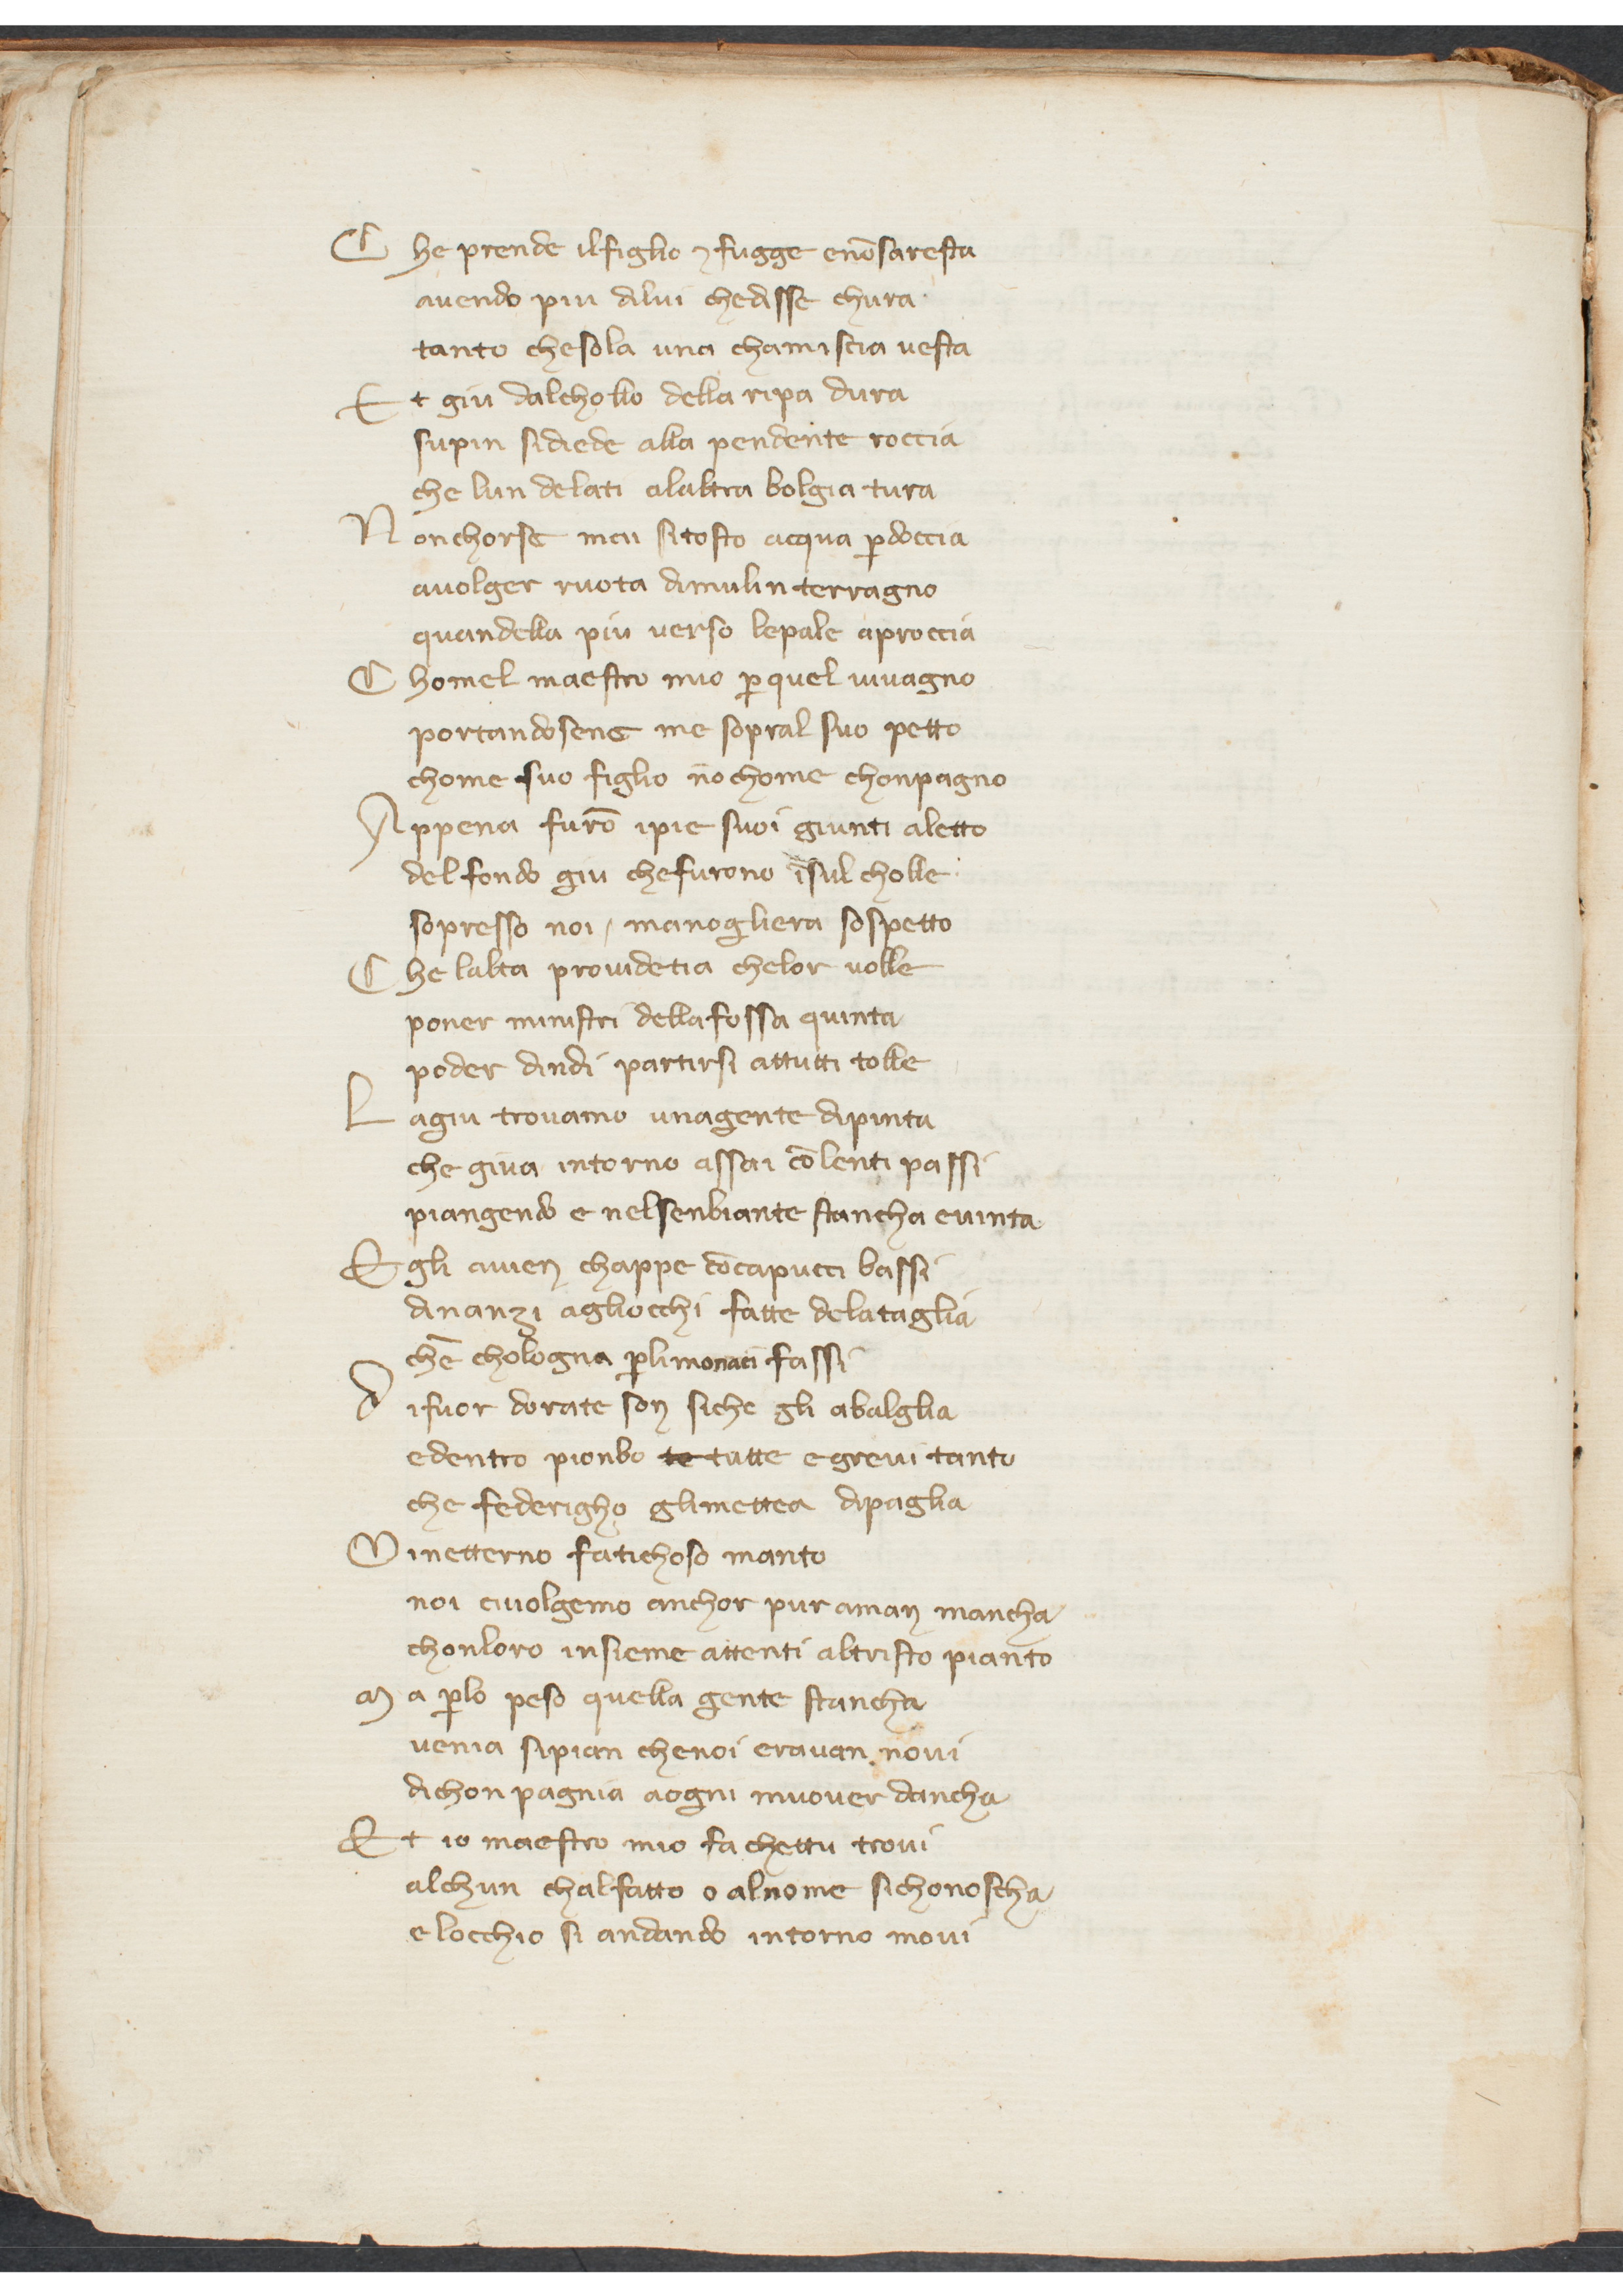 C he prende il figlio ⁊ fugge enō saresta
auendo piu dilui chedisse chura
tanto chesola una chamiscia uesta
E t giu dalchollo della ripa dura
supin sidiede alla pendente roccia
che lun delati alaltra bolgia tura
N onchorse mai sitosto acqua ꝑdoccia
auolger ruota dimulin terragno
quandella piu uerso lepale aproccia
C homel maestro mio ꝑquel uiuagno
portandosene me sopral suo petto
chome suo figlio nō chome chonpagno
A ppena furō ipie suoi giunti aletto
del fondo giu chefurono īsul cholle
sopresso noi / manogliera sospetto
C he lalta prouidetia chelor uolle
poner ministri dellafossa quinta
poder dindi partirsi attutti tolle
L agiu trouamo unagente dipinta
che giua intorno assai cōlenti passi
piangendo e nelsenbiante stancha euinta
E gli auien chappe cōcapucci bassi
dinanzi agliocchi fatte delataglia
chē chologna ꝑlimonaci fassi
D ifuor dorate son siche gli abalglia
edentro pionbo te tutte egreui tanto
che federigho glimettea dipaglia
O inetterno fatichoso manto
noi ciuolgemo anchor pur aman mancha
chonloro insieme attenti altristo pianto
M a ꝑlo peso quella gente stancha
uenia sipian chenoi erauan noui
dichonpagnia aogni muouer dancha
E t io maestro mio fa chettu troui
alchun chalfatto o alnome sichonoscha
e locchio si andando intorno moui